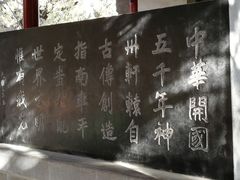 中華開國
五千年神
州軒轅自
古傳創造
指南車平
定蚩尤亂
世界文明
惟有我先